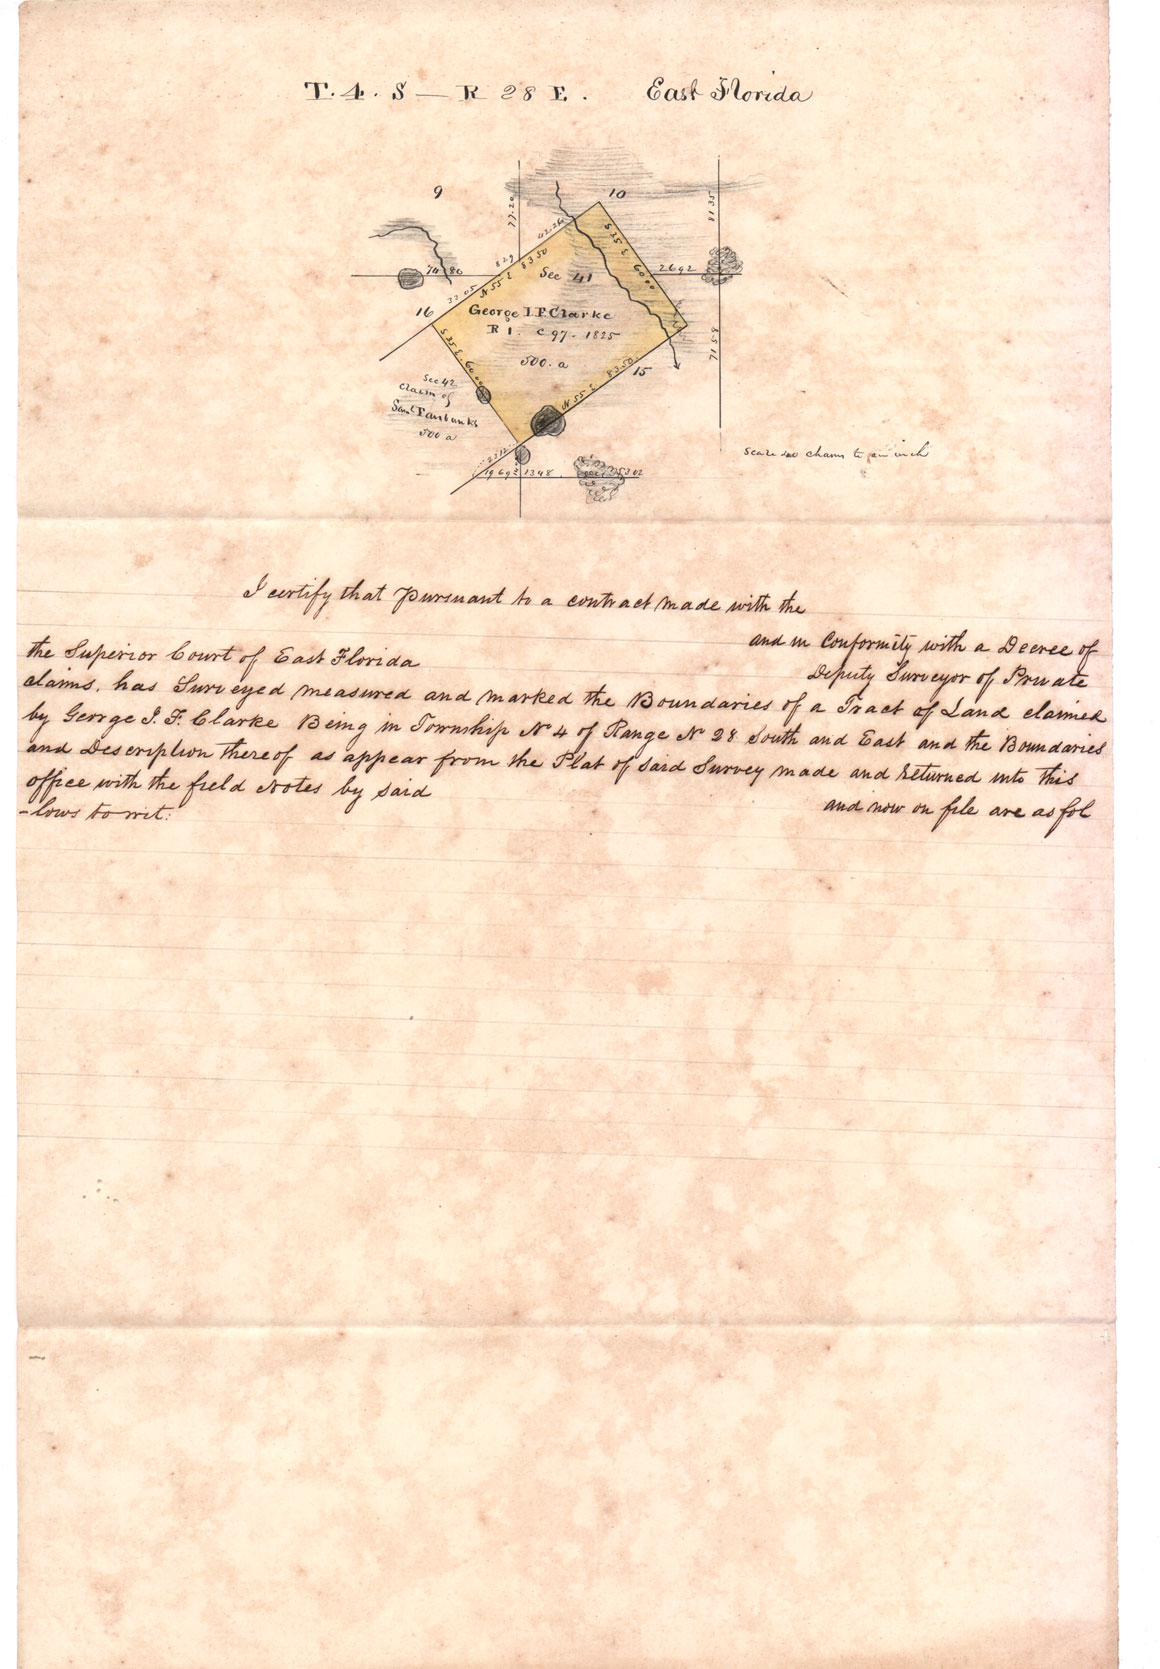 T. 4. S — R 28 E. East Florida
9
10
77.20
81 35
42.26
829
S 35 E 60 00
74 86
33 05
N 55 E 83 50
Sec 41
26 92
16
George I. F. Clarke
R 1. C 97 - 1825
71 58
S 35 E. 60 00
500. a
N 55 E 83.50
15
Sec 42
claim of
Saml Fairbanks
500 a
Scale 40 chains to an inch
19 69
13 48
53 02
I certify that pursuant to a contract made with the
and in Conformity with a Decree of
the Superior Court of East Florida
Deputy Surveyor of Private
claims. has Surveyed measured and marked the Boundaries of a Tract of Land claimed
by George I. F. Clarke Being in Township No 4 of Range No 28 South and East and the Boundaries
and Description thereof as appear from the Plat of Said Survey made and Returned into this
office with the field Notes by said
and now on file are as fol
-lows to wit: